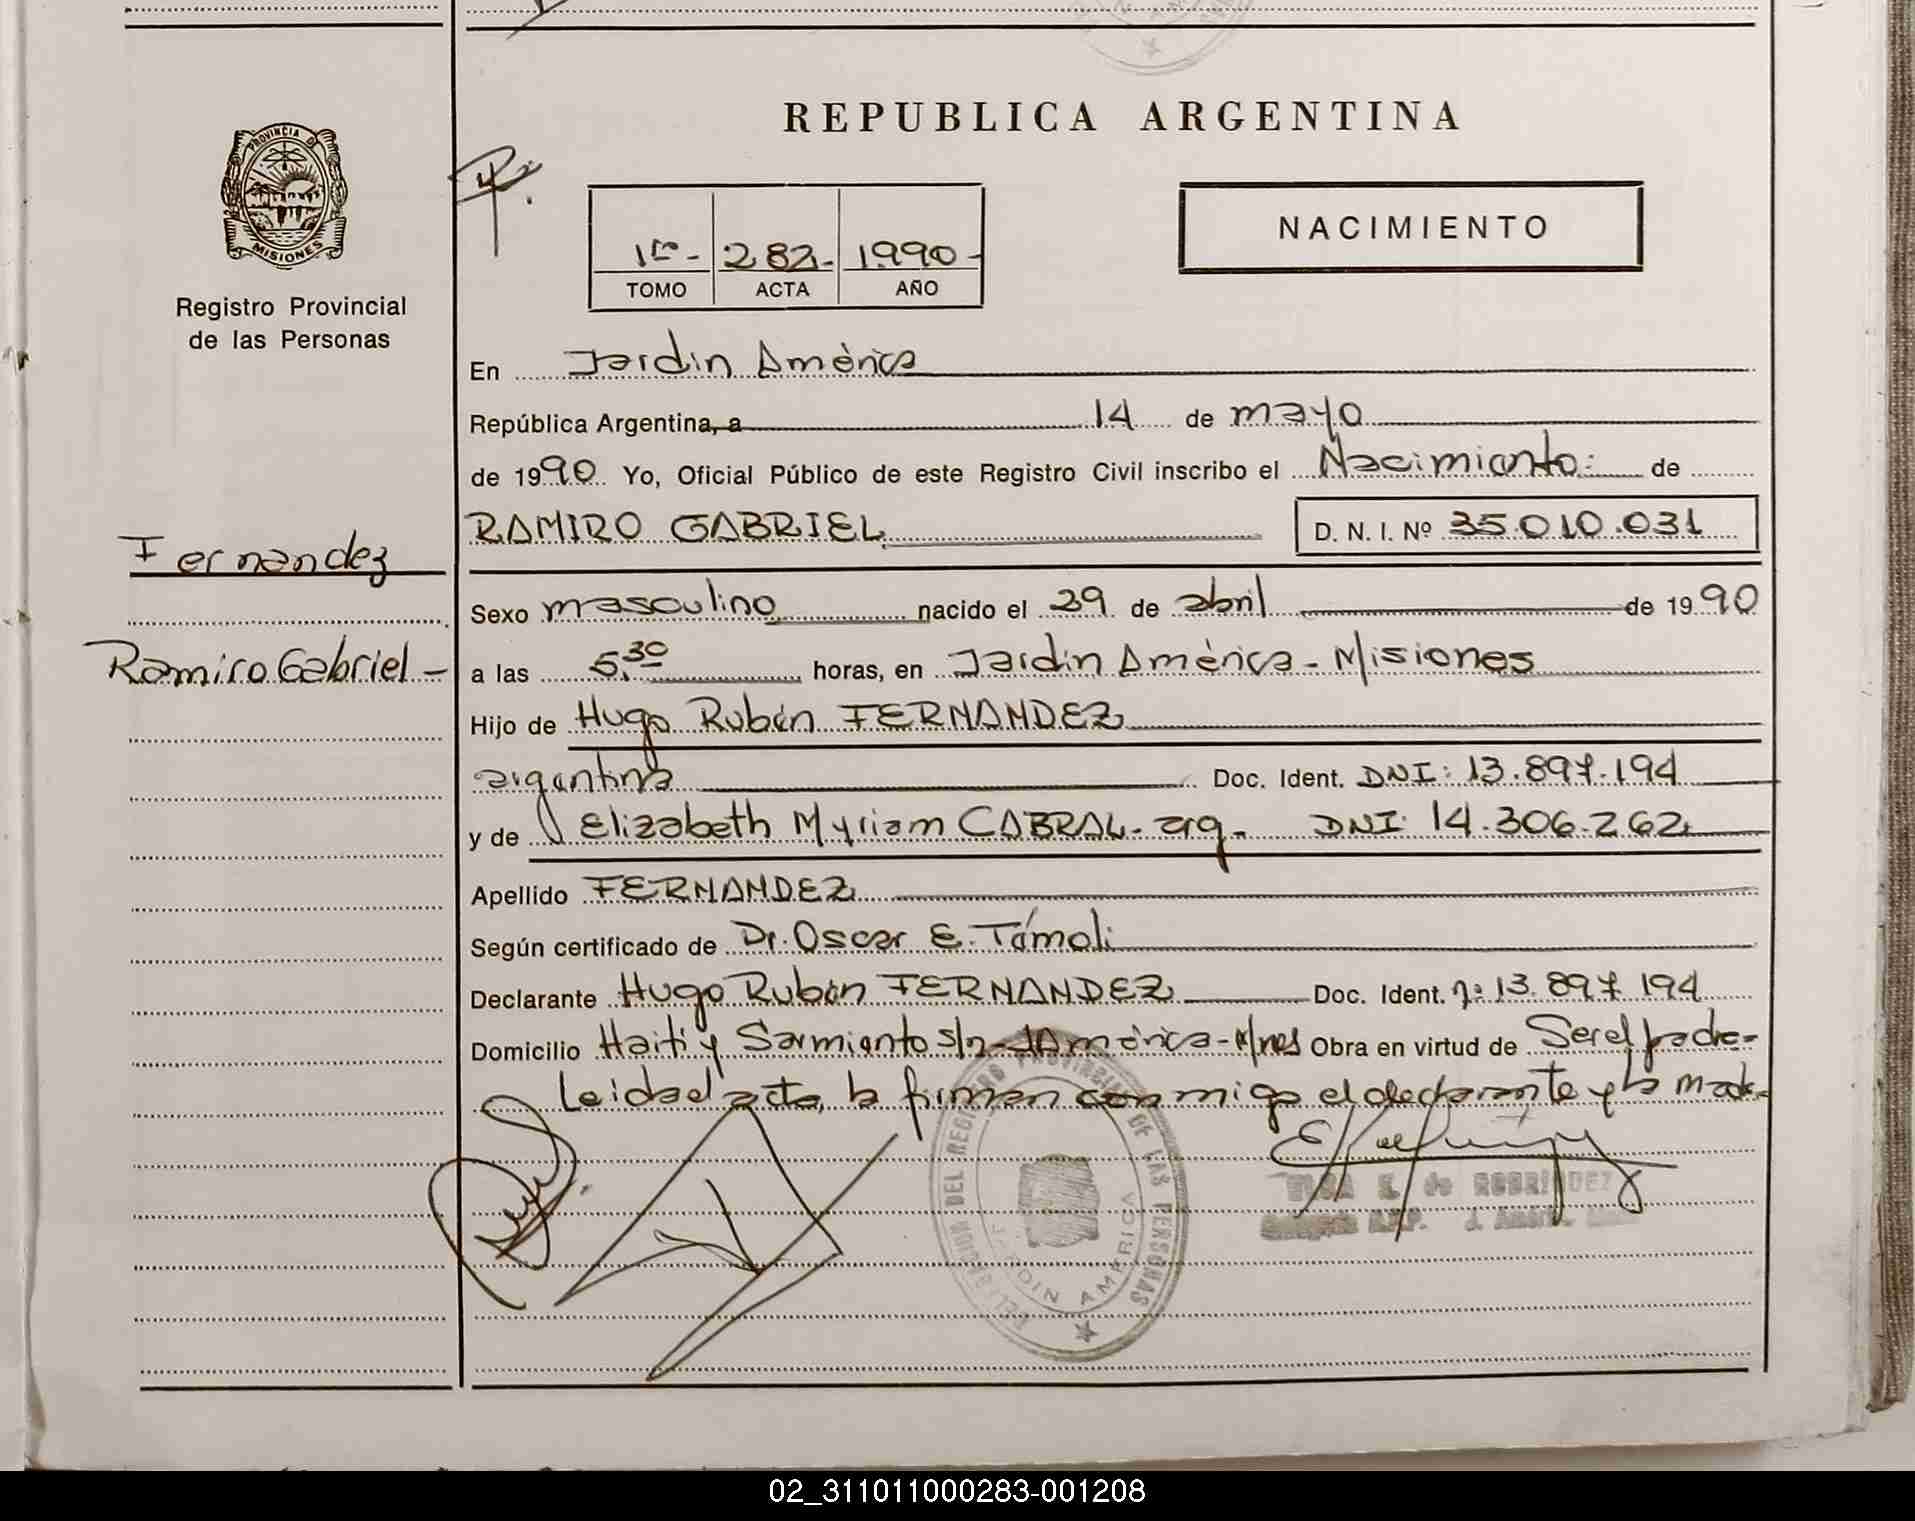 REPUBLICA ARGENTINA
PROVINCIA DE
MISIONES
Registro Provincial
de las Personas
1ro - 282 - 1990 -
TOMO ACTA AÑO
NACIMIENTO
En Jardin América
República Argentina, a 14 de mayo
de 1990 Yo, Oficial Público de este Registro Civil inscribo el Nacimiento: de
RAMIRO GABRIEL D. N. I. Nº 35.010.031
Fernandez
Ramiro Gabriel -
Sexo masculino nacido el 29 de abril de 1990
a las 5,30 horas, en Jardin América - Misiones
Hijo de Hugo Rubén FERNANDEZ
argentina Doc. Ident. DNI: 13.897.194
y de Elizabeth Myriam CABRAL - arg. DNI: 14.306.262
Apellido FERNANDEZ
Según certificado de Dr. Oscar E. Támoli
Declarante Hugo Rubén FERNANDEZ Doc. Ident. nº 13.897.194
Domicilio Haití y Sarmiento s/n - J América - M/nes Obra en virtud de Ser el padre -
Leida el acta, la firman conmigo el declarante y la madre
DELEGACION DEL REGISTRO PROVINCIAL DE LAS PERSONAS
JARDIN AMERICA
E. de RODRIGUEZ
R.P.P. J. América
02_311011000283-001208